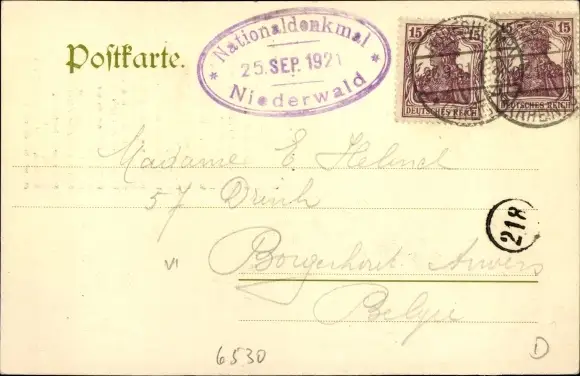 Postkarte.
Nationaldenkmal
25. SEP. 1921
Niederwald
15
DEUTSCHES REICH
15 15
DEUTSCHES REICH
Madame E. Helinck
57 Drink
218
VI
Borgerhout Anvers
Belgie
6530
D